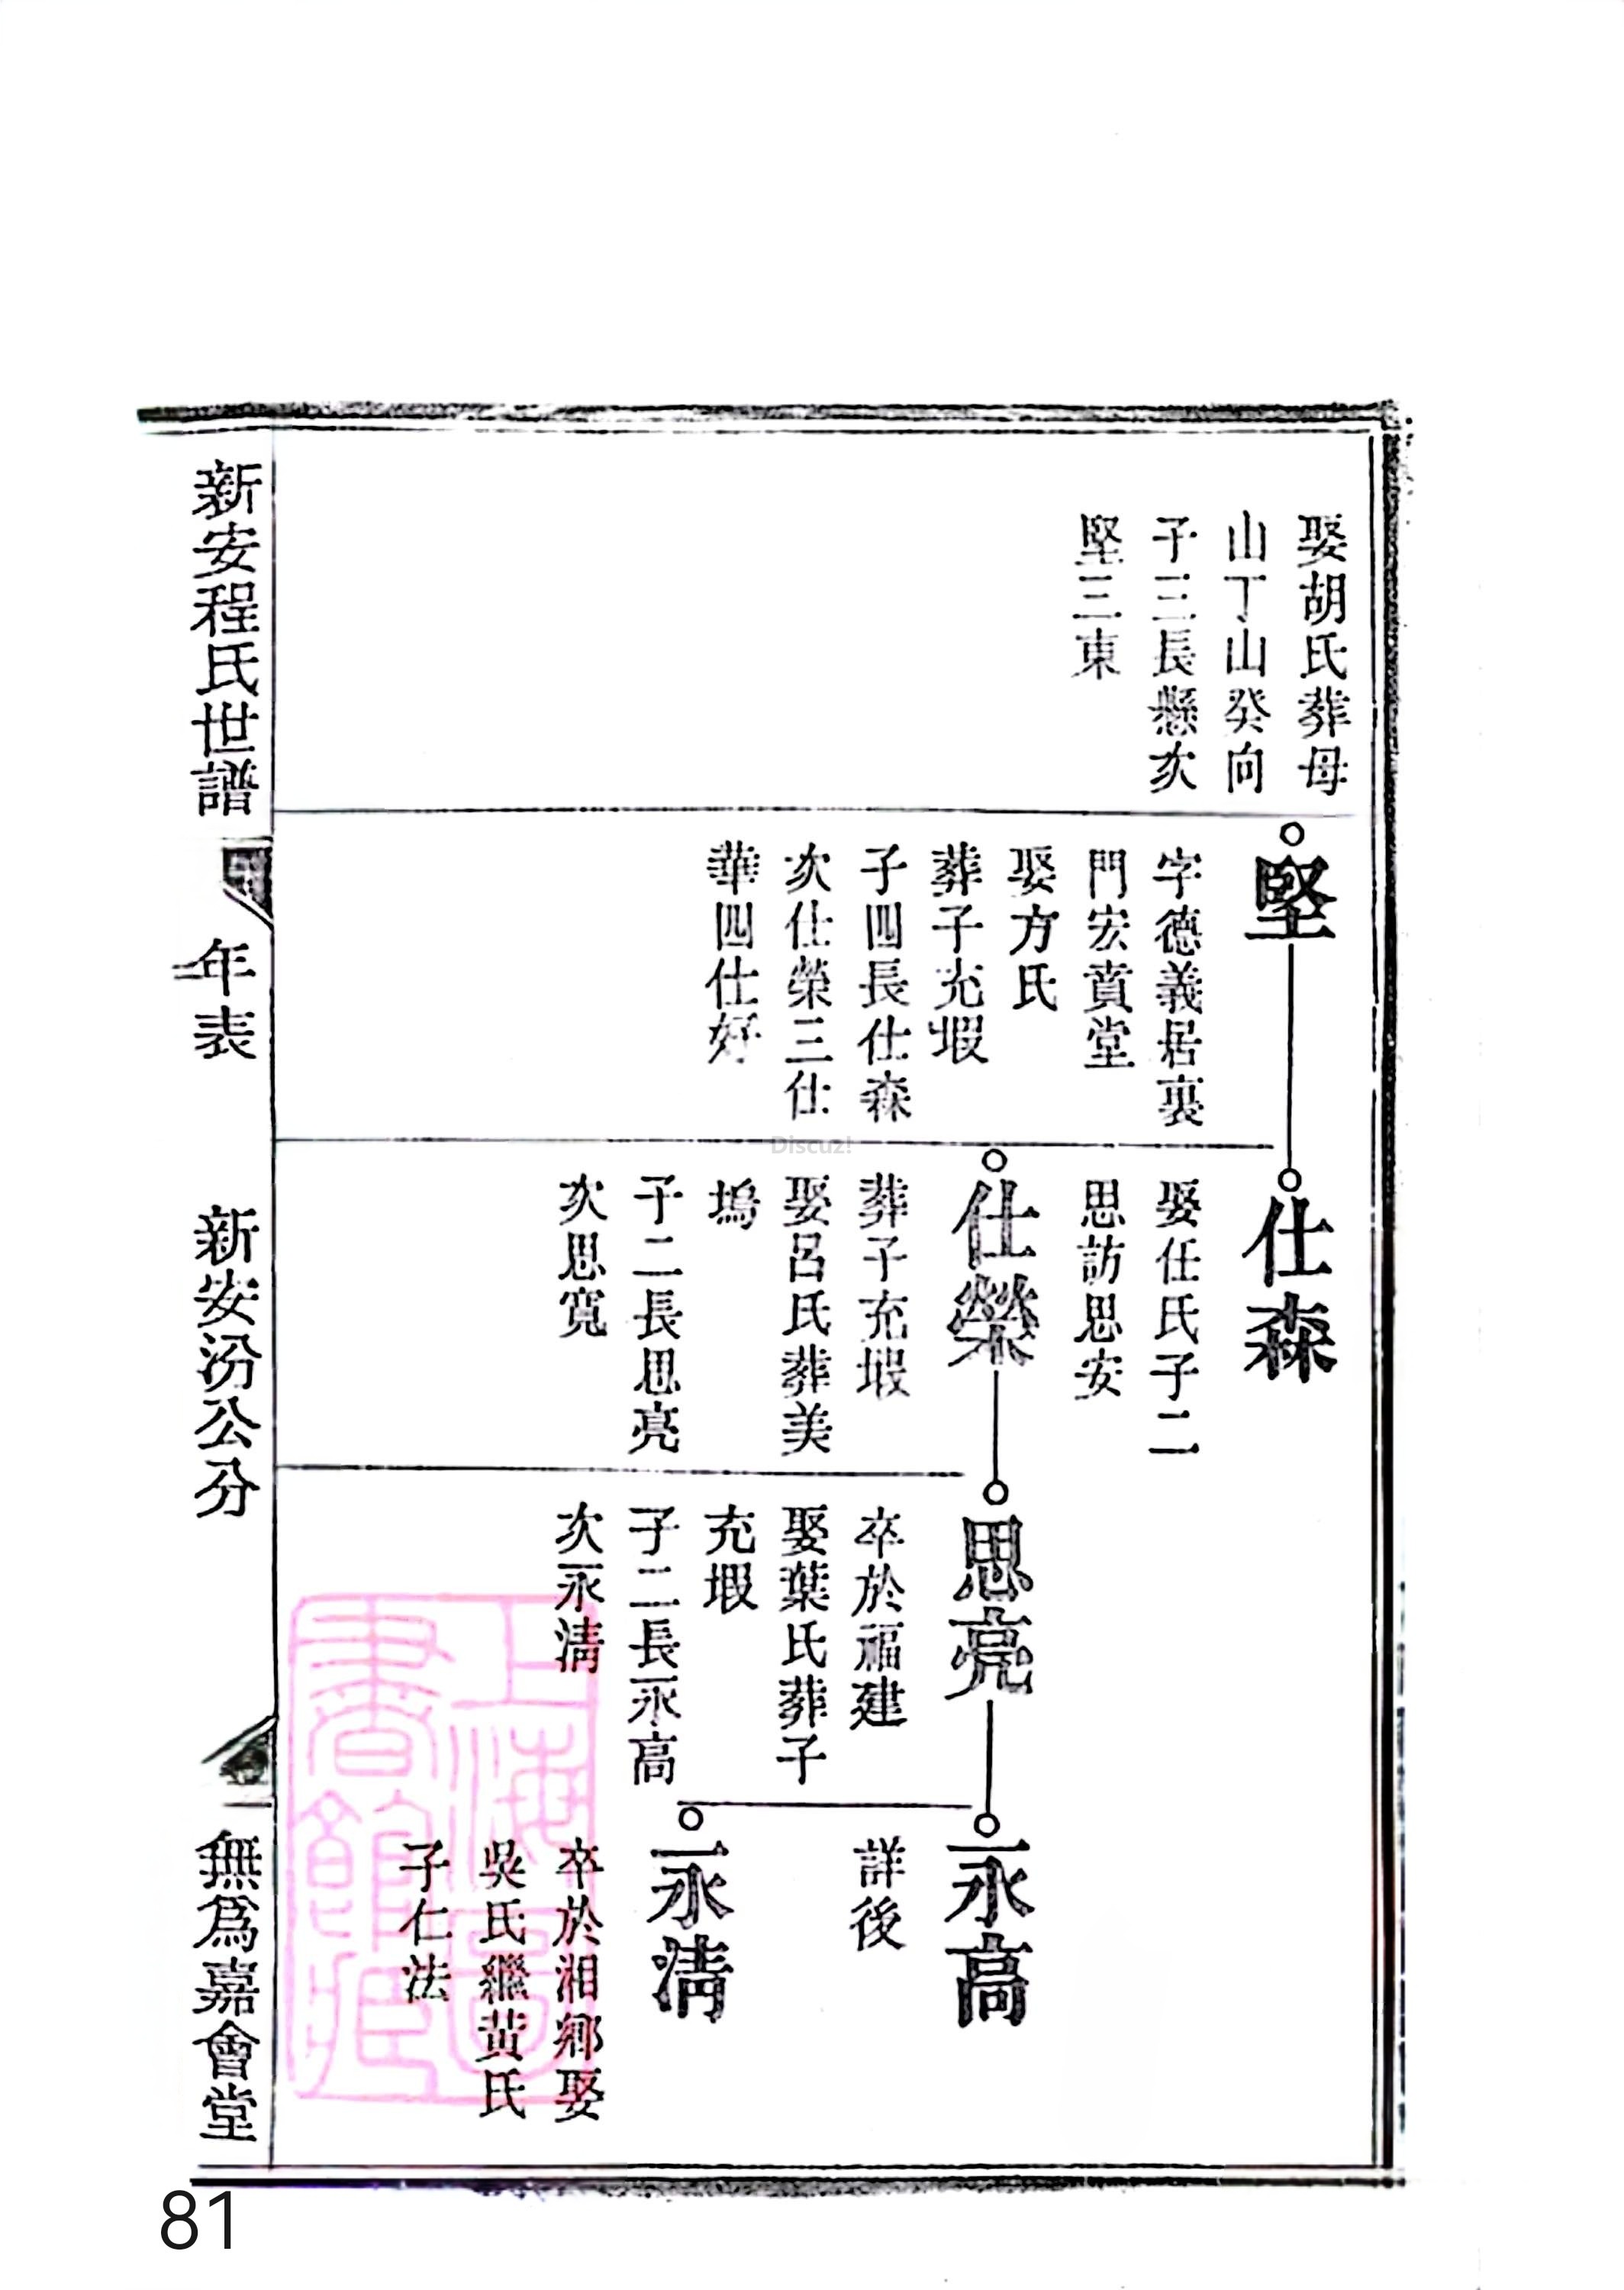 娶胡氏葬母
山丁山癸向
子三長懸次
堅三東
堅
字德義居裏
門宏賁堂
娶方氏
葬子充塅
子四長仕森
次仕榮三仕
華四仕好
仕森
娶任氏子二
思訪思安
仕榮
葬子充塅
娶呂氏葬美
塢
子二長思亮
次思寬
思亮
卒於福建
娶葉氏葬子
充塅
子二長永高
次永淸
永高
詳後
永淸
卒於湘鄉娶
吳氏繼黃氏
子仁法
新安程氏世譜
年表
新安汾公分
無爲嘉會堂
上海圖
書館藏
Discuz!
81